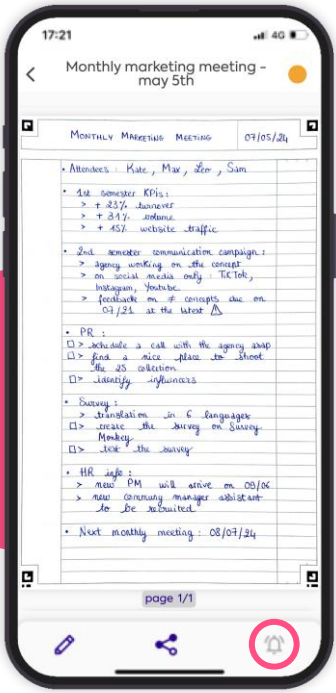 17:21
4G
Monthly marketing meeting -
may 5th
MONTHLY MARKETING MEETING
07/05/24
• Attendees : Kate, Max, Leo, Sam
• 1st semester KPIs :
> + 23% turnover
> + 31% volume
> + 45% website traffic
• 2nd semester communication campaign :
> agency working on the concept
> on social media only : TikTok,
Instagram, Youtube
> feedback on ≠ concepts due on
07/21 at the latest ⚠
• PR :
□> schedule a call with the agency asap
□> find a nice place to shoot
the 25 collection
□> identify influencers
• Survey :
> translation in 6 languages
□> create the survey on Survey
Monkey
□> test the survey
• HR info :
> new PM will arrive on 09/06
> new communy manager assistant
to be recruited
• Next monthly meeting : 08/07/24
page 1/1